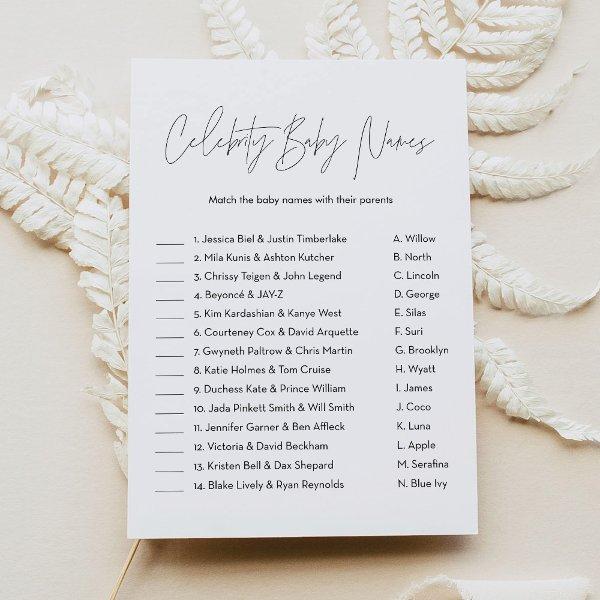 Celebrity Baby Names
Match the baby names with their parents
____ 1. Jessica Biel & Justin Timberlake A. Willow
____ 2. Mila Kunis & Ashton Kutcher B. North
____ 3. Chrissy Teigen & John Legend C. Lincoln
____ 4. Beyoncé & JAY-Z D. George
____ 5. Kim Kardashian & Kanye West E. Silas
____ 6. Courteney Cox & David Arquette F. Suri
____ 7. Gwyneth Paltrow & Chris Martin G. Brooklyn
____ 8. Katie Holmes & Tom Cruise H. Wyatt
____ 9. Duchess Kate & Prince William I. James
____ 10. Jada Pinkett Smith & Will Smith J. Coco
____ 11. Jennifer Garner & Ben Affleck K. Luna
____ 12. Victoria & David Beckham L. Apple
____ 13. Kristen Bell & Dax Shepard M. Serafina
____ 14. Blake Lively & Ryan Reynolds N. Blue Ivy